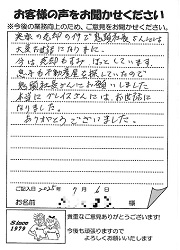 お客様の声をお聞かせください
※今後の業務向上のため、ご意見をお聞かせください。
実家の売却の件で馬場社長さんには
大変お世話になりました。
今は売却もすみ ほっとしています。
息子も不動産屋を探していたので
馬場社長さんにお願いしました
本当に プレイスさんには、お世話に
なりました。
ありがとうございました。
ご記入日 2025年 9月 6日
お名前 様
Since
1979
貴重なご意見ありがとうございます!
今後も頑張りますので
よろしくお願いいたします。